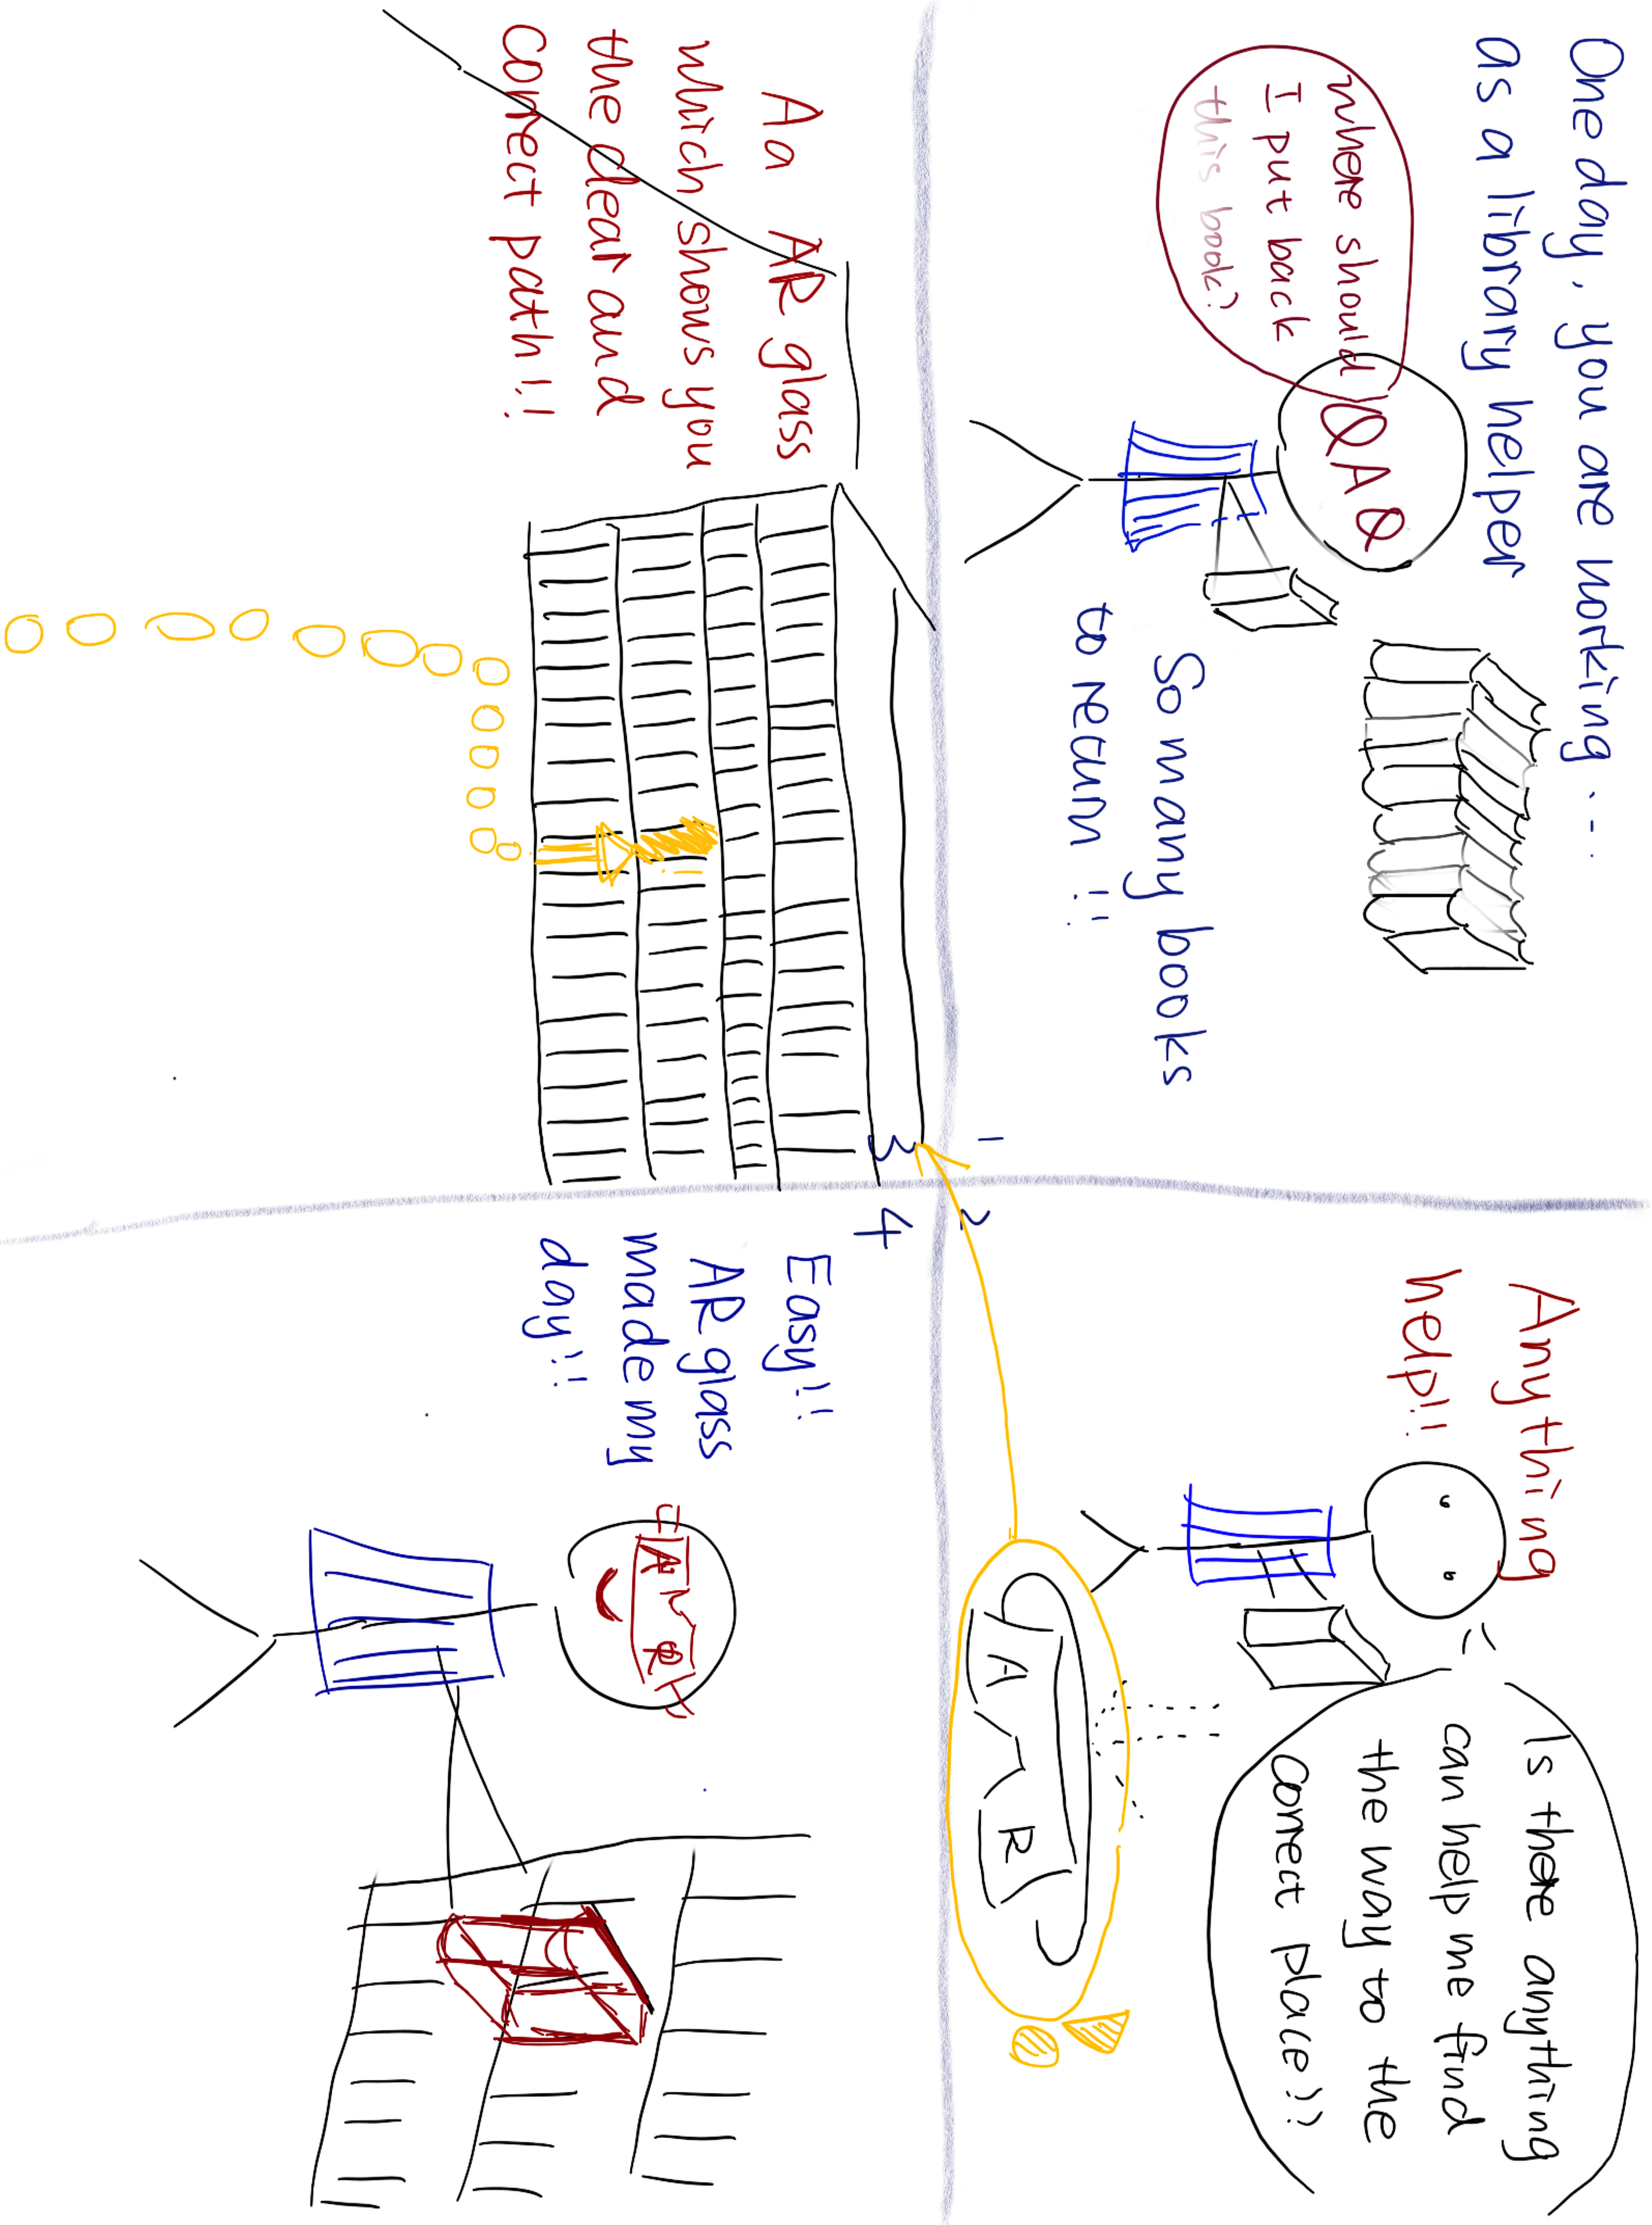 One day, you are working....
as a library helper
where should
I put back
this book?
QAQ
So many books
to return !!
1
Anything
help!!
Is there anything
can help me find
the way to the
correct place??
A R
2
3
Aa AR glass
which shows you
the clear and
correct path!!
4
Easy!!
AR glass
made my
day!!
A R